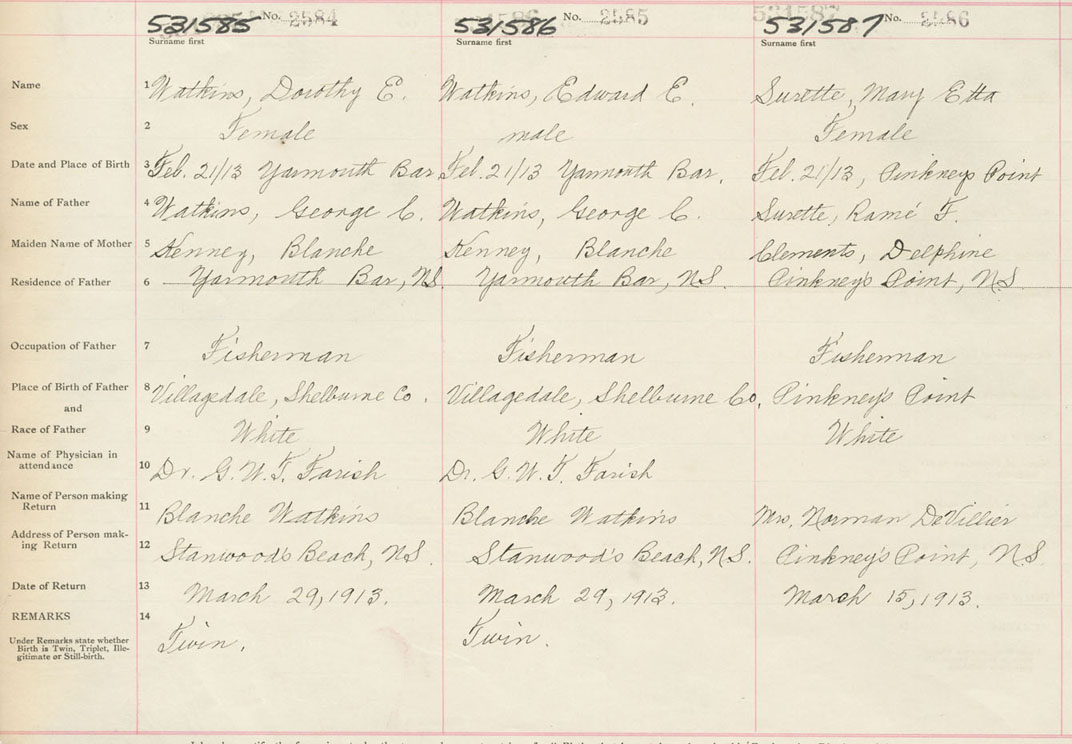 531585 No. 2584 531586 No. 2585 531587 No. 2586
Surname first Surname first Surname first
Name 1 Watkins, Dorothy E. Watkins, Edward E. Surette, Mary Etta
Sex 2 Female male Female
Date and Place of Birth 3 Feb. 21/13 Yarmouth Bar. Feb. 21/13 Yarmouth Bar. Feb. 21/13, Pinkney's Point
Name of Father 4 Watkins, George C. Watkins, George C. Surette, Ramé F.
Maiden Name of Mother 5 Kenney, Blanche Kenney, Blanche Clements, Delphine
Residence of Father 6 Yarmouth Bar, N.S. Yarmouth Bar, N.S. Pinkney's Point, N.S.
Occupation of Father 7 Fisherman Fisherman Fisherman
Place of Birth of Father 8 Villagedale, Shelburne Co. Villagedale, Shelburne Co. Pinkney's Point
and
Race of Father 9 White White White
Name of Physician in
attendance 10 Dr. G. W. T. Farish Dr. G. W. T. Farish
Name of Person making
Return 11 Blanche Watkins Blanche Watkins Mrs. Norman DeVillier
Address of Person mak-
ing Return 12 Stanwood's Beach, N.S. Stanwood's Beach, N.S. Pinkney's Point, N.S.
Date of Return 13 March 29, 1913. March 29, 1913. March 15, 1913.
REMARKS 14
Under Remarks state whether
Birth is Twin, Triplet, Ille-
gitimate or Still-birth. Twin. Twin.